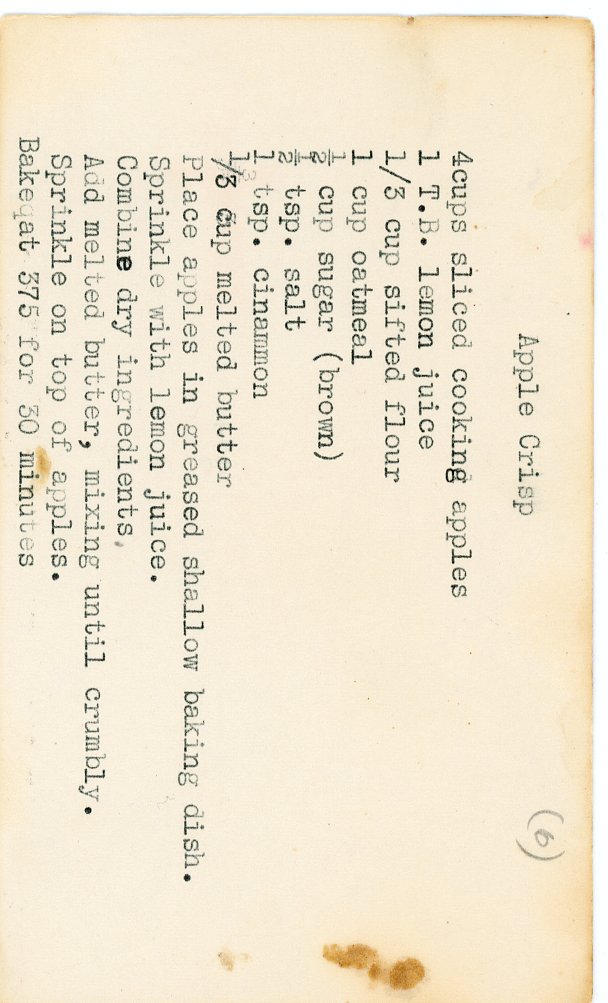 Apple Crisp
(6)
4cups sliced cooking apples
1 T.B. lemon juice
1/3 cup sifted flour
1 cup oatmeal
½ cup sugar (brown)
½ tsp. salt
1 tsp. cinammon
1/3 cup melted butter
Place apples in greased shallow baking dish.
Sprinkle with lemon juice.
Combine dry ingredients.
Add melted butter, mixing until crumbly.
Sprinkle on top of apples.
Bake at 375 for 30 minutes